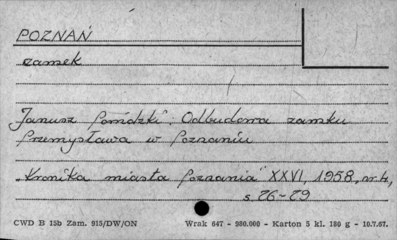 POZNAŃ
zamek
Janusz Powidzki: Odbudowa zamku
Przemysława w Poznaniu
"Kronika miasta Poznania" XXVI, 1958, nr 4,
s. 26-29
CWD B 15b Zam. 915/DW/ON Wrak 647 - 980.000 - Karton 5 kl. 180 g - 10.7.67.